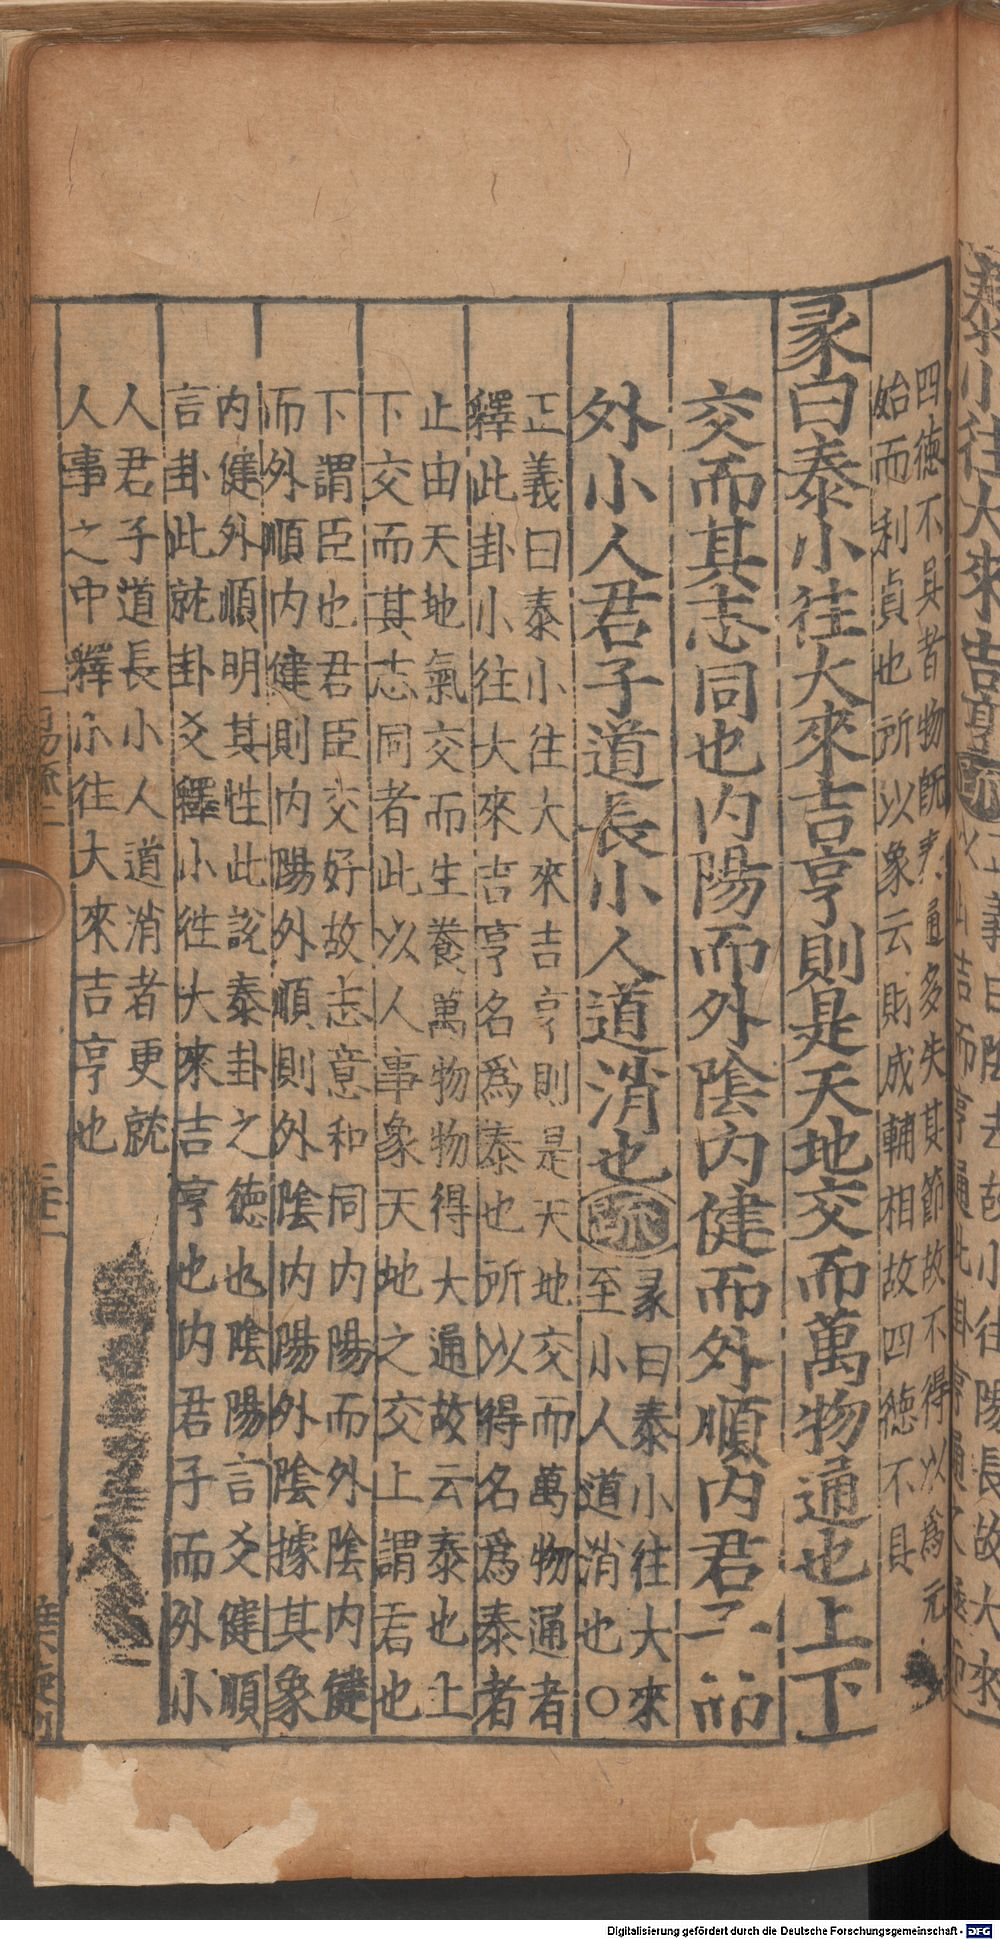 四德不具者物既泰通多失其節故不得以爲元
始而利貞也所以象云財成輔相故四德不具
彖曰泰小往大來吉亨則是天地交而萬物通也上下
交而其志同也内陽而外陰内健而外順内君子而
外小人君子道長小人道消也疏
彖曰泰小往大來
至小人道消也○
正義曰泰小往大來吉亨則是天地交而萬物通者
釋此卦小往大來吉亨名爲泰也所以得名爲泰者
止由天地氣交而生養萬物物得大通故云泰也上
下交而其志同者此以人事象天地之交上謂君也
下謂臣也君臣交好故志意和同内陽而外陰内健
而外順内健則内陽外順則外陰内陽外陰據其象
内健外順明其性此説泰卦之德也陰陽言爻健順
言卦此就卦爻釋小徃大來吉亨也内君子而外小
人君子道長小人道消者更就
人事之中釋小往大來吉亨也
泰小往大來吉亨疏
正義曰陰去故小往陽長故大來
以此吉而亨通此卦亨通之極而
易疏二
Digitalisierung gefördert durch die Deutsche Forschungsgemeinschaft - DFG